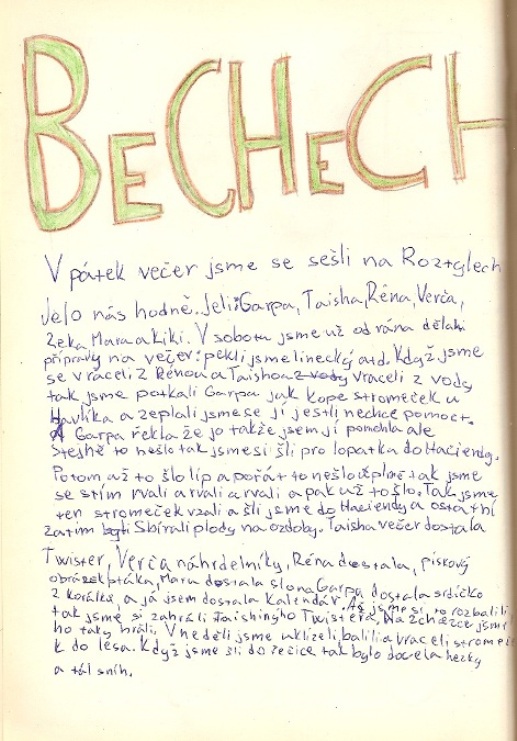 BECHECH
V pátek večer jsme se sešli na Roztglech
Jelo nás hodně. Jeli: Garpa, Taisha, Réna, Verča,
Zeka, Mara a Kiki. V sobotu jsme už od rána dělali
přípravy na večer: pekli jsme linecký atd. Když jsme
se vraceli z Rénou a Taishou z vody vraceli z vody
tak jsme potkali Garpu jak kope stromeček u
Havlíka a zeptali jsme se jí jestli nechce pomoct.
A Garpa řekla že jo takže jsem jí pomohla ale
stejně to nešlo tak jsme si šli pro lopatku do Haciendy.
Potom už to šlo líp a pořát to nešlo úplně tak jsme
se s tím rvali a rvali a rvali a pak už to šlo. Tak jsme
ten stromeček vzali a šli jsme do Haciendy a ostatní
zatím byli sbírali plody na ozdoby. Taisha večer dostala
Twister, Verča náhrdelníky, Réna dostala, pískový
obrázek ptáka, Mara dostala slona Garpa dostala srdíčko
z korálků, a já jsem dostala Kalendář. Až jsme si to rozbalili
tak jsme si zahráli Taishinýho Twistera, Na Zcházce jsme
ho taky hráli. V neděli jsme uklízeli, balili a vraceli stromeče
k do lesa. Když jsme šli do Řečice tak bylo docela hezky
a tál sníh.